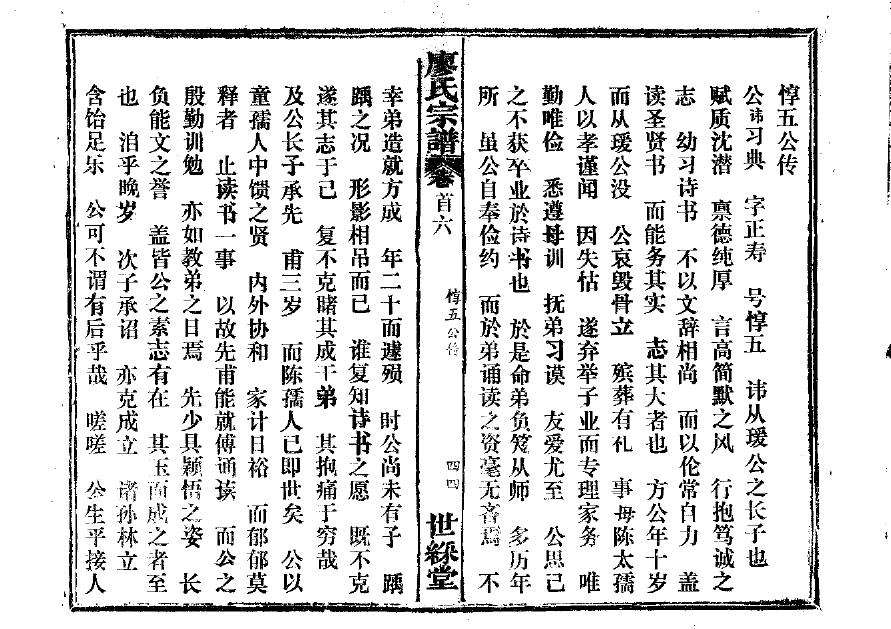 惇五公传
公讳习典　字正寿　号惇五　讳从瑗公之长子也
赋质沈潜　禀德纯厚　言高简默之风　行抱笃诚之
志　幼习诗书　不以文辞相尚　而以伦常自力　盖
读圣贤书　而能务其实　志其大者也　方公年十岁
而从瑗公没　公哀毁骨立　殡葬有礼　事母陈太孺
人以孝谨闻　因失怙　遂弃举子业而专理家务　唯
勤唯俭　悉遵母训　抚弟习谟　友爱尤至　公思己
之不获卒业於诗书也　於是命弟负笈从师　多历年
所　虽公自奉俭约　而於弟诵读之资毫无吝焉　不
廖氏宗譜 卷首六 惇五公传 四四 世綵堂
幸弟造就方成　年二十而遽殒　时公尚未有子　踽
踽之况　形影相吊而已　谁复知诗书之愿　既不克
遂其志于己　复不克睹其成于弟　其抱痛于穷哉
及公长子承先　甫三岁　而陈孺人已即世矣　公以
童孺人中馈之贤　内外协和　家计日裕　而郁郁莫
释者　止读书一事　以故先甫能就傅诵读　而公之
殷勤训勉　亦如教弟之日焉　先少具颖悟之姿　长
负能文之誉　盖皆公之素志有在　其玉而成之者至
也　洎乎晚岁　次子承诏　亦克成立　诸孙林立
含饴足乐　公可不谓有后乎哉　嗟嗟　公生平接人